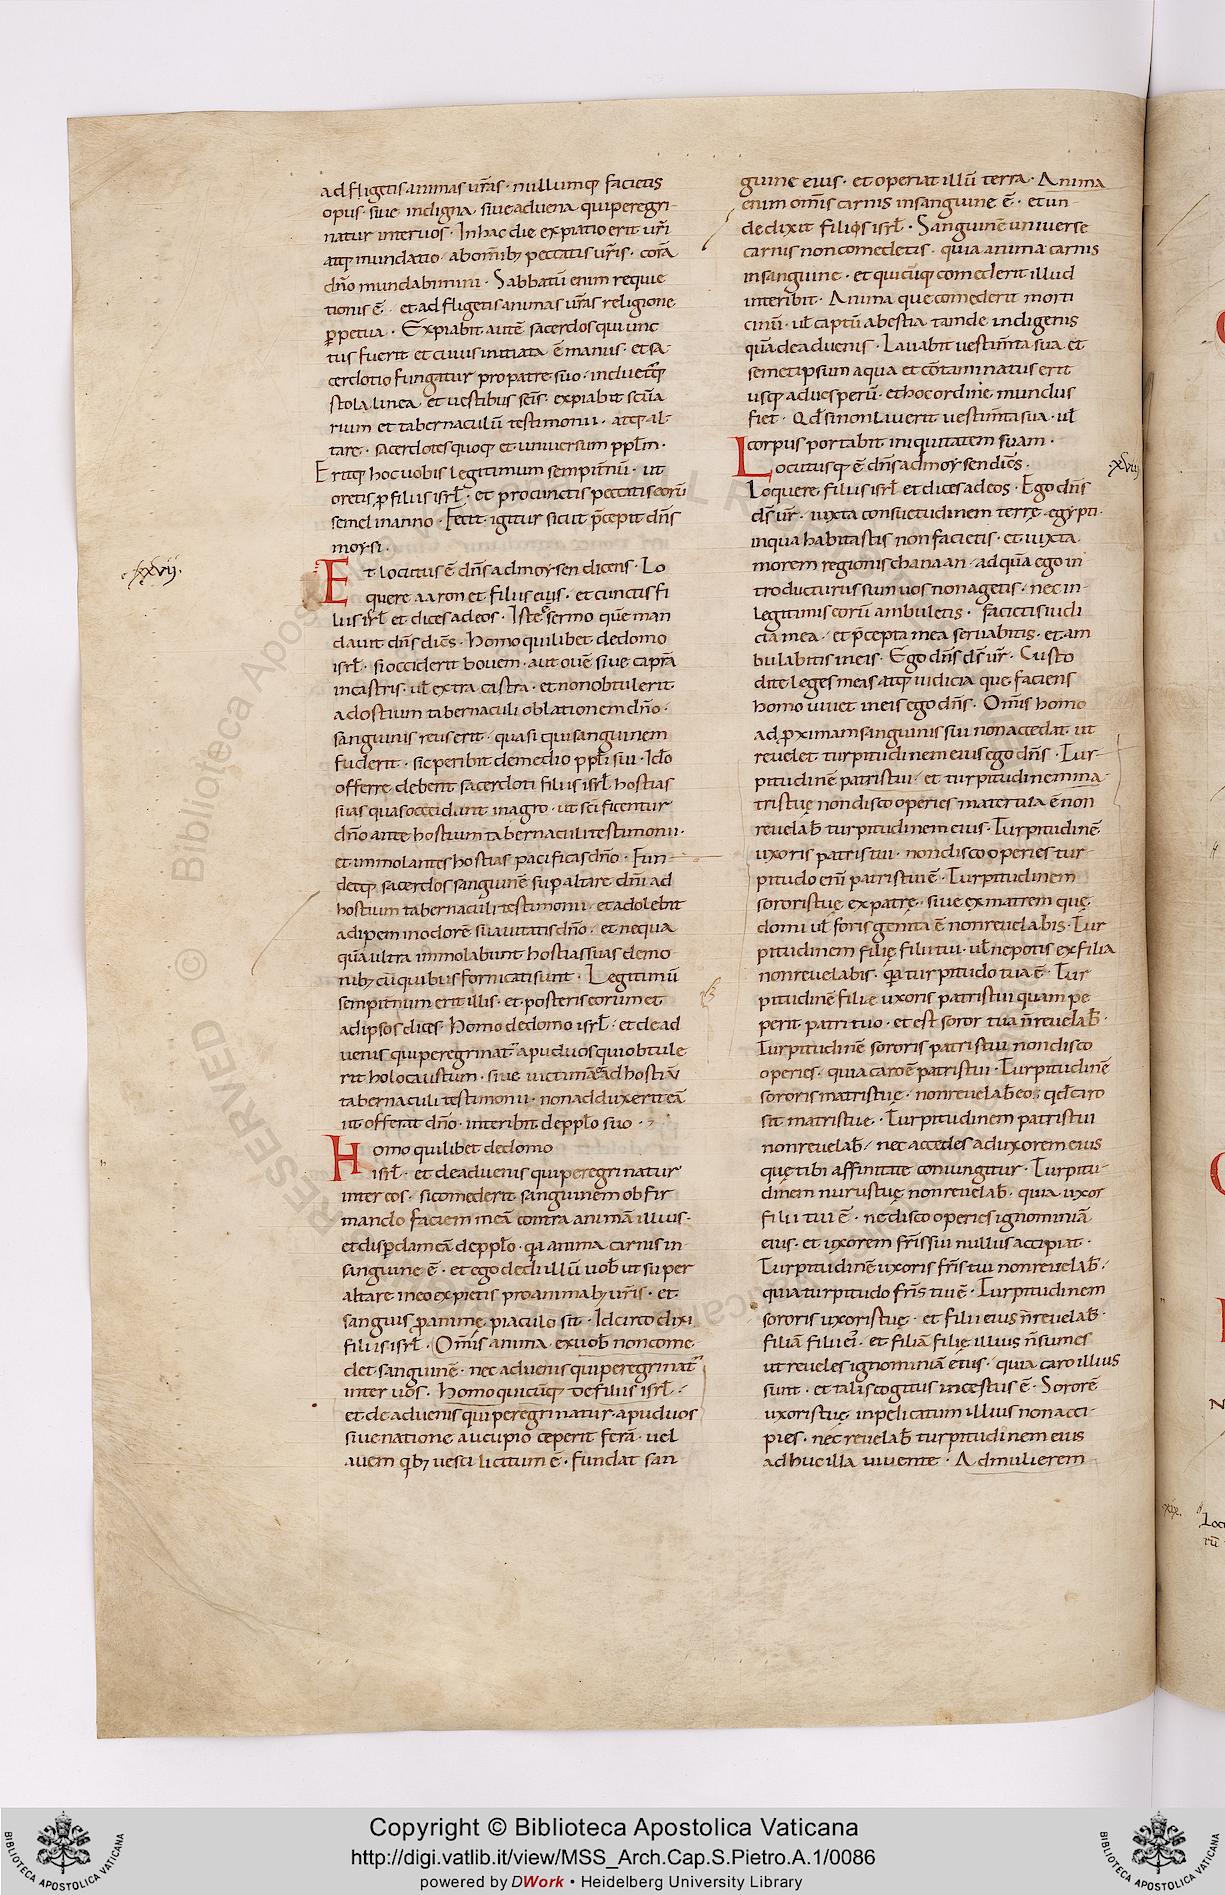 adfligetis animas ur̃as · nullumq; facietis
opus · siue indigna · siue aduena qui peregri-
natur inter uos · In hac die expiatio erit ur̃i
atq; mundatio · ab omĩb; peccatis ur̃is · corã
dño mundabimini · Sabbatũ enim requie
tionis ẽ · et adfligetis animas ur̃as religione
ꝑpetua · Expiabit autẽ sacerdos qui unc
tus fuerit et cuius initiata ẽ manus · et sa
cerdotio fungatur pro patre suo · induetq;
stola linea et uestibus scĩs · expiabit sc̃ua
rium et tabernaculũ testimonii · atq; al-
tare · sacerdotes quoq; et uniuersum ppl̃m ·
Eritq; hoc uobis legitimum sempit̃nũ · ut
oretis ꝓ filiis isrl̃ · et pro cunctis peccatis eorũ
semel in anno · Fecit igitur sicut p̃cepit dñs
moysi ·
xxvii ·
Et locutus ẽ dñs ad moysen dicens · Lo
quere aaron et filiis eius · et cunctis fi
liis isrl̃ et dices ad eos · Iste ẽ sermo quẽ man
dauit dñs dicẽs · Homo quilibet de domo
isrl̃ · si occiderit bouem · aut ouẽ siue caprã
in castris · ul̃ extra castra · et non obtulerit
ad ostium tabernaculi oblationem dño ·
sanguinis reus erit · quasi qui sanguinem
fuderit · sic peribit de medio ppl̃i sui · Ido
offerre debent sacerdoti filii isrl̃ hostias
suas quas occidunt in agro · ut sc̃ificentur
dño ante hostium tabernaculi testimonii ·
et immolantes hostias pacificas dño · Fun-
detq; sacerdos sanguinẽ sup altare dñi ad
hostium tabernaculi testimonii · et adolebit
adipem in odorẽ suauitatis dño · et nequa
quã ultra immolabunt hostias suas demo
nib; cũ quibus fornicati sunt · Legitimũ
sempit̃num erit illis · et posteris eorum et
ad ipsos dices · Homo de domo isrl̃ · et de ad
uenis qui peregrinat̃ apud uos qui obtule
rit holocaustum · siue uictimã · et ad hostiũ
tabernaculi testimonii · non adduxerit eã
ut offerat dño · interibit de pplõ suo ·
Homo quilibet de domo
isrl̃ · et de aduenis qui peregrinatur
inter eos · si comederit sanguinem obfir
mabo faciem meã contra animã illius ·
et disp̃dam eã de pplõ · q̃a anima carnis in
sanguine ẽ · et ego dedi illũ uob̃ ut super
altare in eo expietis pro animab; ur̃is · et
sanguis ꝓ animę piaculo sit · Idcirco dixi
filiis isrl̃ · Om̃is anima ex uob̃ non come
det sanguinẽ · nec aduenis qui peregrinat̃
inter uos · Homo quicũq; de filiis isrl̃ ·
et de aduenis qui peregrinatur apud uos
si uenatione aucupio ceperit ferã · uel
auem q̃b; uesci licitum ẽ · fundat san
guine eius · et operiat illũ terra · Anima
enim om̃is carnis in sanguine ẽ · et un-
de dixit filiis isrl̃ · Sanguinẽ uniuerse
carnis non comedetis · quia anima carnis
in sanguine · et quicũq; comederit illud
interibit · Anima que comederit morti
cinũ · ul̃ captũ a bestia tam de indigenis
quã de aduenis · Lauabit uestim̃ta sua et
semetipsum aqua et cõtaminatus erit
usq; ad uesperũ · et hoc ordine mundus
fiet · Qđ si non lauerit uestim̃ta sua · ul̃
corpus portabit iniquitatem suam ·
Locutusq; ẽ dñs ad moysen dicẽs ·
xviii
Loquere filiis isrl̃ et dices ad eos · Ego dñs
ds̃ ur̃ · iuxta consuetudinem terrę egypti ·
in qua habitastis non facietis · et iuxta
morem regionis chanaan · ad quã ego in
troducturus sum uos non agetis · nec in
legitimis eorũ ambuletis · facietis iudi
cia mea · et p̃cepta mea seruabitis · et am
bulabitis in eis · Ego dñs ds̃ ur̃ · Custo
dite leges meas atq; iudicia que faciens
homo uiuet in eis ego dñs · Om̃is homo
ad ꝓximam sanguinis sui non accedat · ut
reuelet turpitudinem eius ego dñs · Tur-
pitudinẽ patris tui · et turpitudinem ma-
tris tuę non discooperies mater tua ẽ non
reuelab̃ turpitudinem eius · Turpitudinẽ
uxoris patris tui · non discooperies tur-
pitudo enĩ patris tui ẽ · Turpitudinem
sororis tuę ex patrę · siue ex matrem quę
domi ul̃ foris genita ẽ non reuelabis · Tur
pitudinem filię filii tui · ul̃ nepotis ex filia
non reuelabis · q̃a turpitudo tua ẽ · Tur
pitudinẽ filie uxoris patris tui quam pe
perit patri tuo · et est soror tua ñ reuelab̃ ·
Turpitudinẽ sororis patris tui non disco
operies · quia caro ẽ patris tui · Turpitudinẽ
sororis matris tuę · non reuelab̃ eo · qđ caro
sit matris tuę · Turpitudinem patris tui
non reuelab̃ · nec accedes ad uxorem eius
quę tibi affinitate coniungitur · Turpitu-
dinem nurus tuę non reuelab̃ · quia uxor
filii tui ẽ · ne discooperies ignominiã
eius · et uxorem fr̃is sui nullus accipiat ·
Turpitudinẽ uxoris fr̃is tui non reuelab̃ ·
quia turpitudo fr̃is tui ẽ · Turpitudinem
sororis uxoris tuę · et filii eius ñ reuelab̃ ·
filiã filii ei · et filiã filię illius ñ sumes
ut reueles ignominiã eius · quia caro illius
sunt · et talis cogitus incestus ẽ · Sororẽ
uxoris tuę in pelicatum illius non acci-
pies · nec reuelab̃ turpitudinem eius
adhuc illa uiuente · Ad mulierem
xix.
Copyright © Biblioteca Apostolica Vaticana
http://digi.vatlib.it/view/MSS_Arch.Cap.S.Pietro.A.1/0086
powered by DWork • Heidelberg University Library